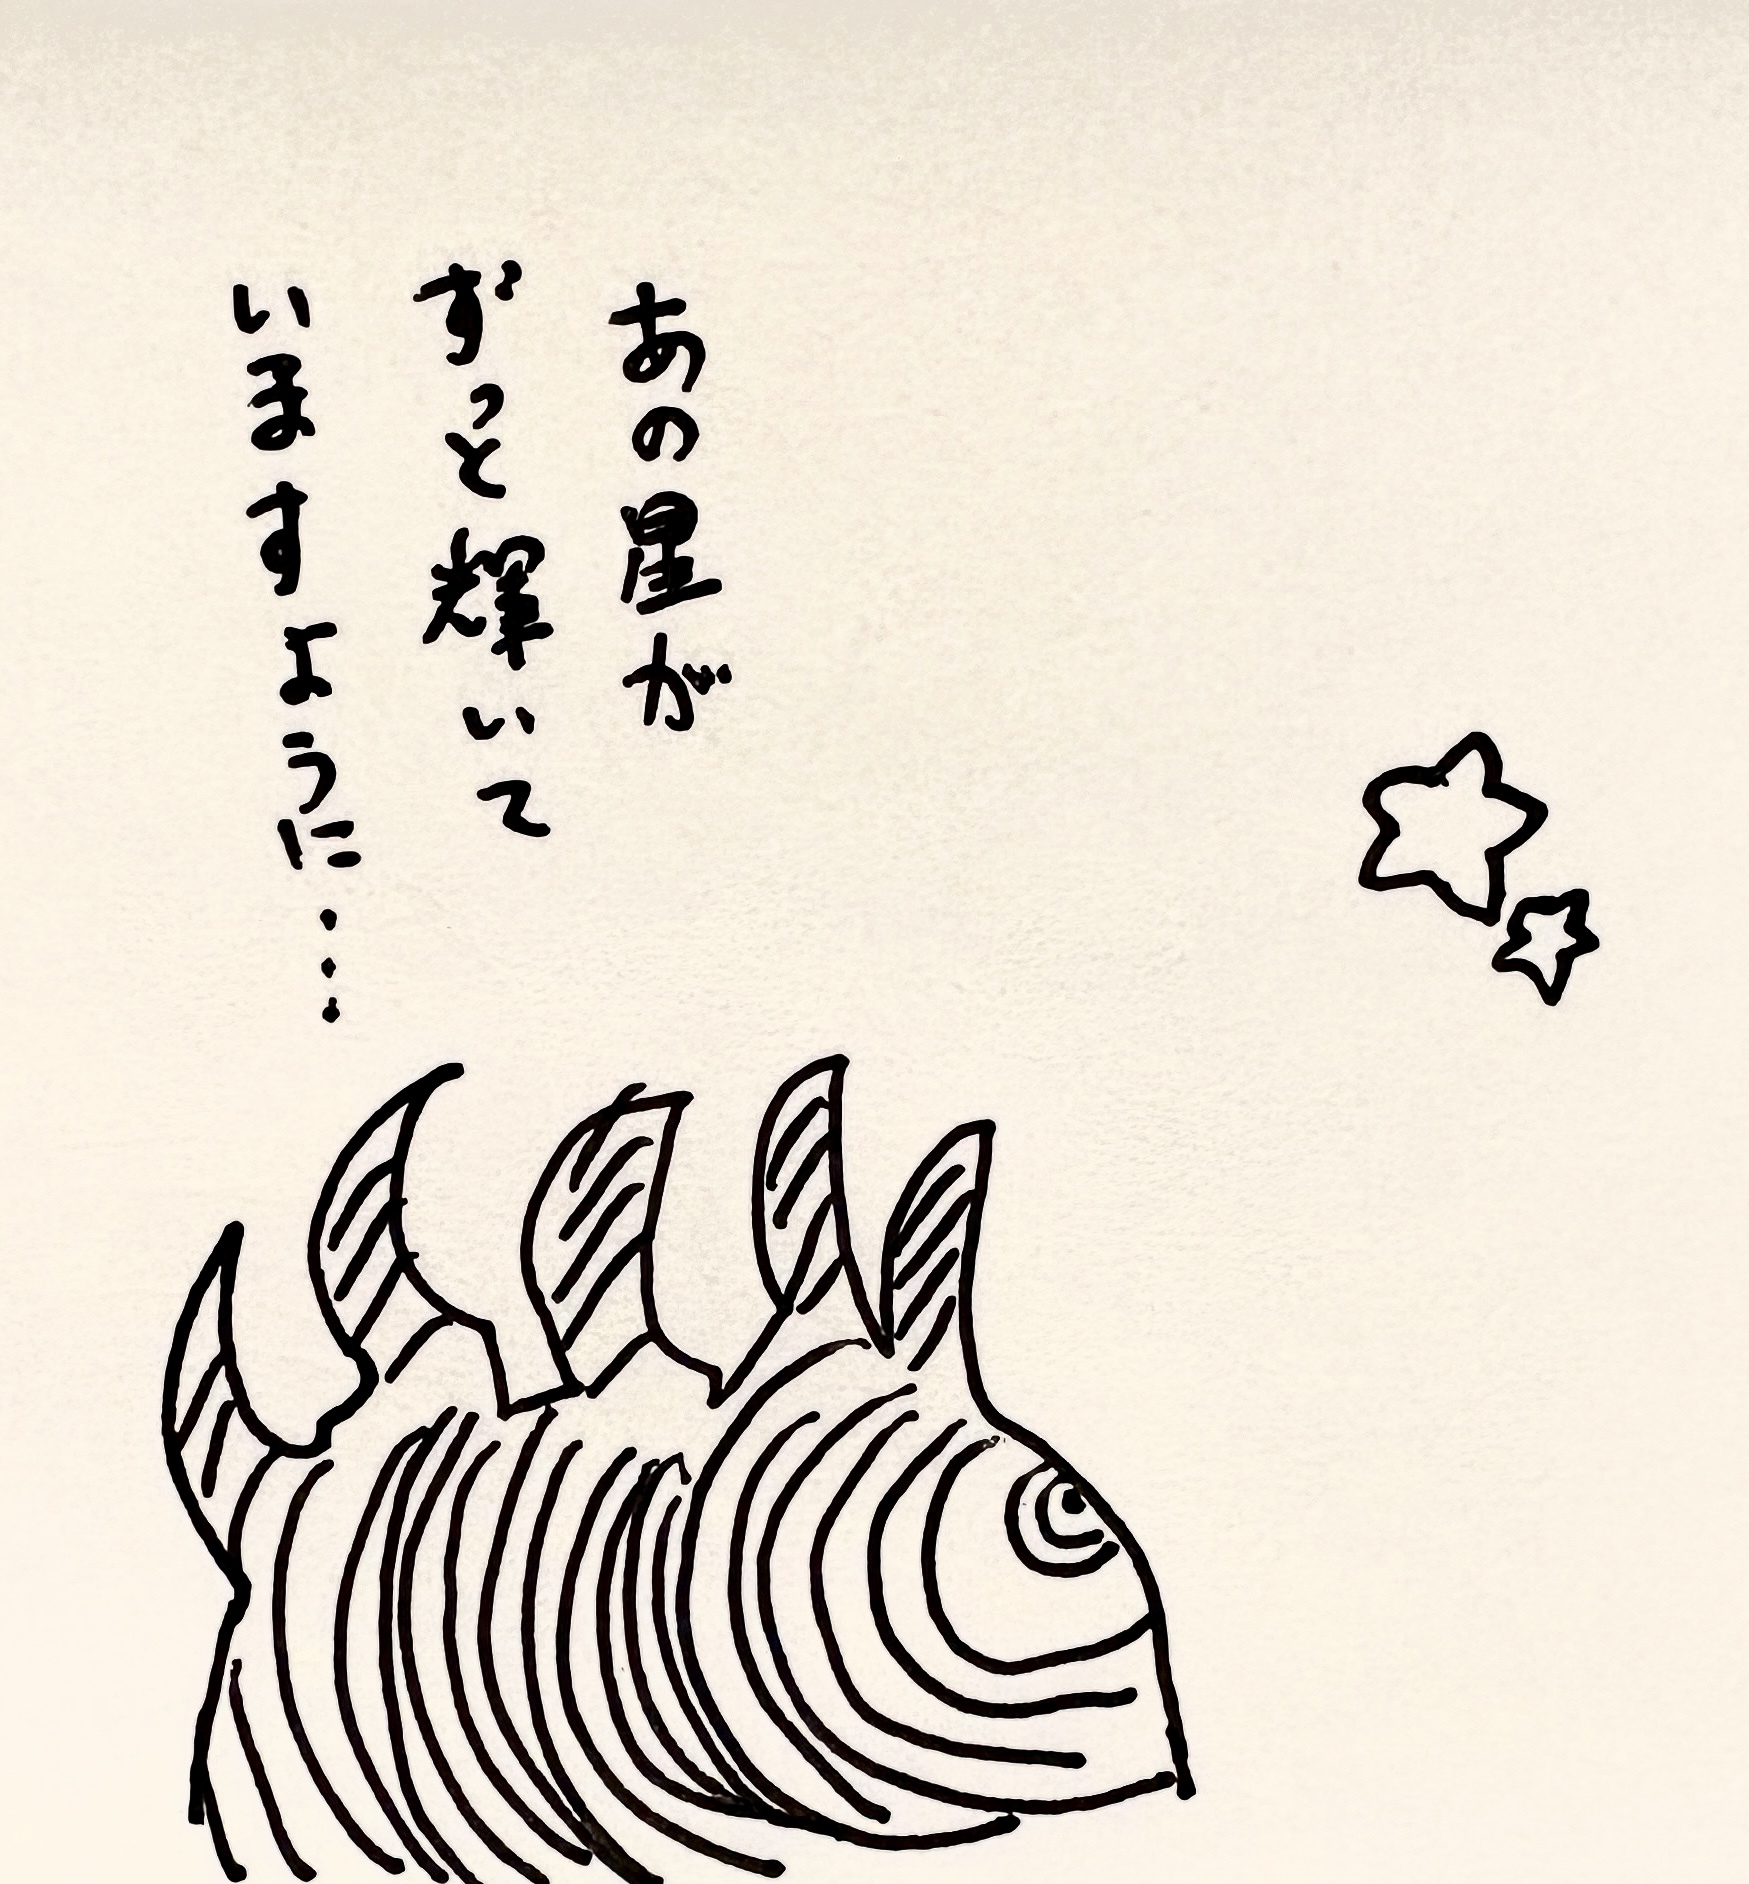 あの星が
ずっと輝いて
いますように…